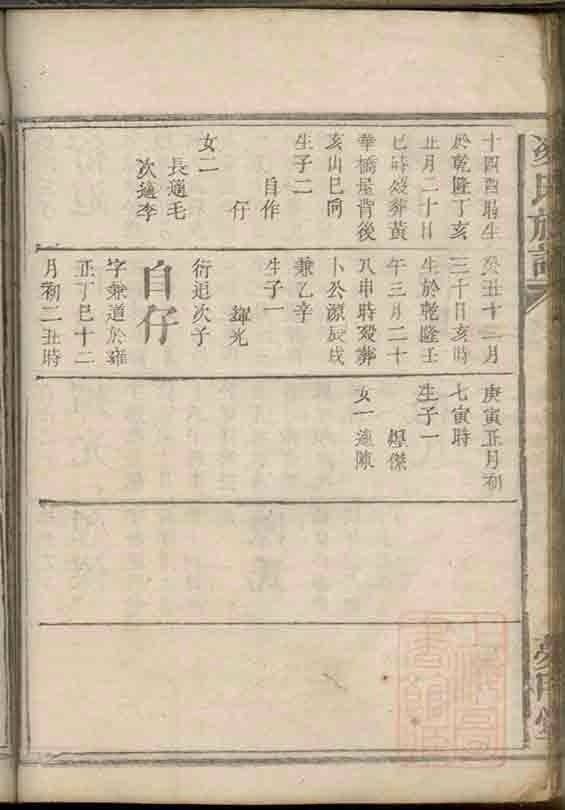 十四酉時生
於乾隆丁亥
正月二十日
巳時歿葬黃
華橋屋背後
亥山巳向
生子二
自作
仔
女二
長適毛
次適李
癸丑十一月
三十日亥時
生於乾隆壬
午三月二十
八申時歿葬
卜公源辰戌
兼乙辛
生子一
輝光
衍迟次子
自仔
字兼道於雍
正丁巳十二
月初二丑時
庚寅正月初
七寅時
生子一
煋傑
女一適陳
氏族譜